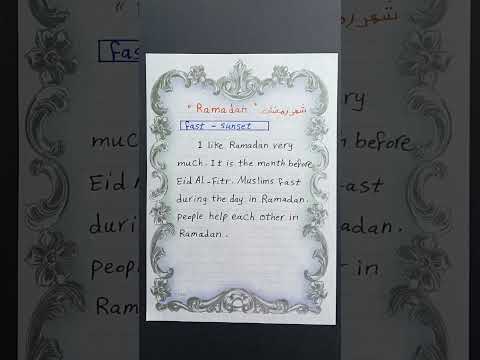 " Ramadan " شهر رمضان
fast - sunset
I like Ramadan very
much. It is the month before
Eid Al-Fitr. Muslims fast
during the day in Ramadan.
people help each other in
Ramadan.